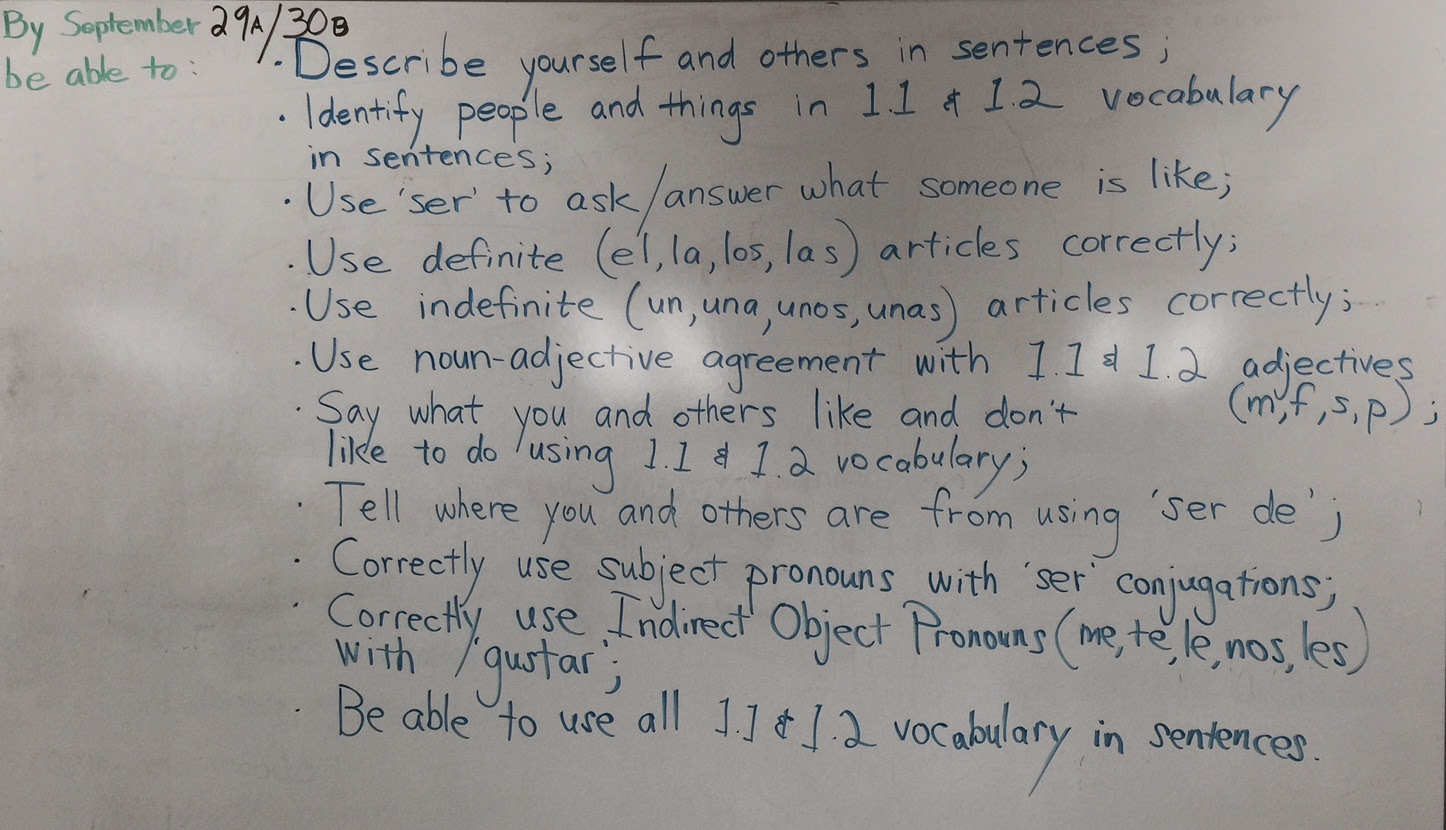 By September 29A/30B
be able to:
· Describe yourself and others in sentences;
· Identify people and things in 1.1 & 1.2 vocabulary
in sentences;
· Use 'ser' to ask/answer what someone is like;
· Use definite (el, la, los, las) articles correctly;
· Use indefinite (un, una, unos, unas) articles correctly;
· Use noun-adjective agreement with 1.1 & 1.2 adjectives
(m, f, s, p);
· Say what you and others like and don't
like to do using 1.1 & 1.2 vocabulary;
· Tell where you and others are from using 'ser de';
· Correctly use subject pronouns with 'ser' conjugations;
· Correctly use Indirect Object Pronouns (me, te, le, nos, les)
with 'gustar';
· Be able to use all 1.1 & 1.2 vocabulary in sentences.